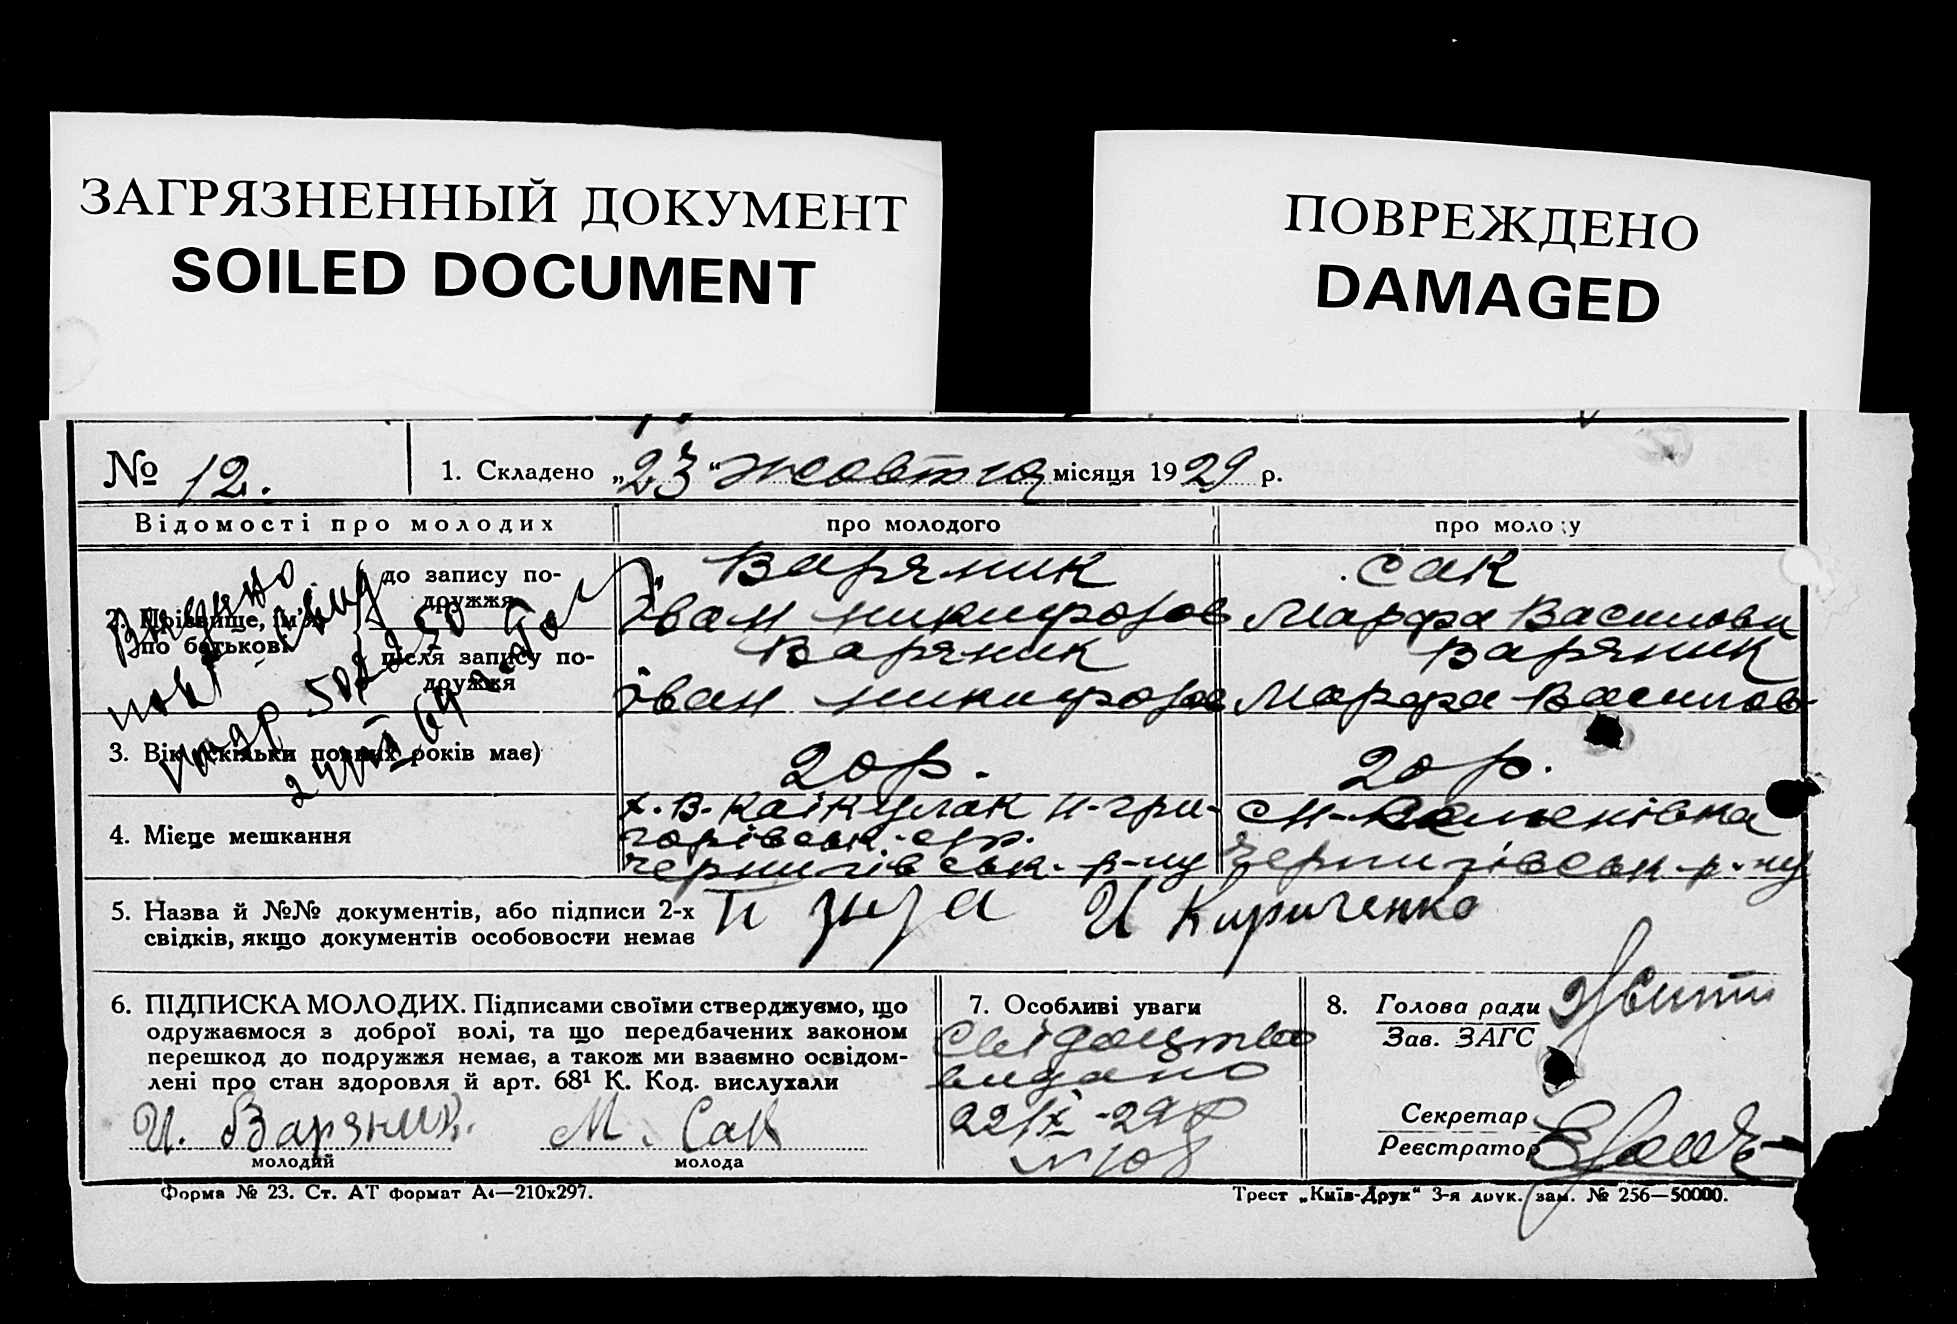 ЗАГРЯЗНЕННЫЙ ДОКУМЕНТ
SOILED DOCUMENT
ПОВРЕЖДЕНО
DAMAGED
№ 12.
1. Складено „23“ жовтня місяця 1929 р.
Відомості про молодих
про молодого
про моло у
2. Прізвище, ім'я по батькові
до запису подружжя
Варяник
Іван никифоров
сак
Марфа Василовн
після запису по-
дружжя
Варяник
Іван никифоров
Варяник
Марфа Василов-
Видано
3. Вік (скільки повних років має)
20 р.
20 р.
4. Місце мешкання
х. В. Каїкулак н-гри-
горівськ. с/р.
чернигівськ. р-ну
чернигівськ р-ну
5. Назва й №№ документів, або підписи 2-х
свідків, якщо документів особовости немає
И Кириченко
6. ПІДПИСКА МОЛОДИХ. Підписами своїми стверджуємо, що
одружаємося з доброї волі, та що передбачених законом
перешкод до подружжя немає, а також ми взаємно освідом-
лені про стан здоровля й арт. 68¹ К. Код. вислухали
И. Варяник.
молодий
М. Сак
молода
7. Особливі уваги
Свідоцтво
видано
8. Голова ради
Зав. ЗАГС
Секретар
Реєстратор
Форма № 23. Ст. АТ формат А4—210х297.
Трест „Київ-Друк“ 3-я друк. зам. № 256—50000.